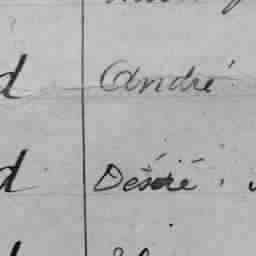 d André
d Desiré.